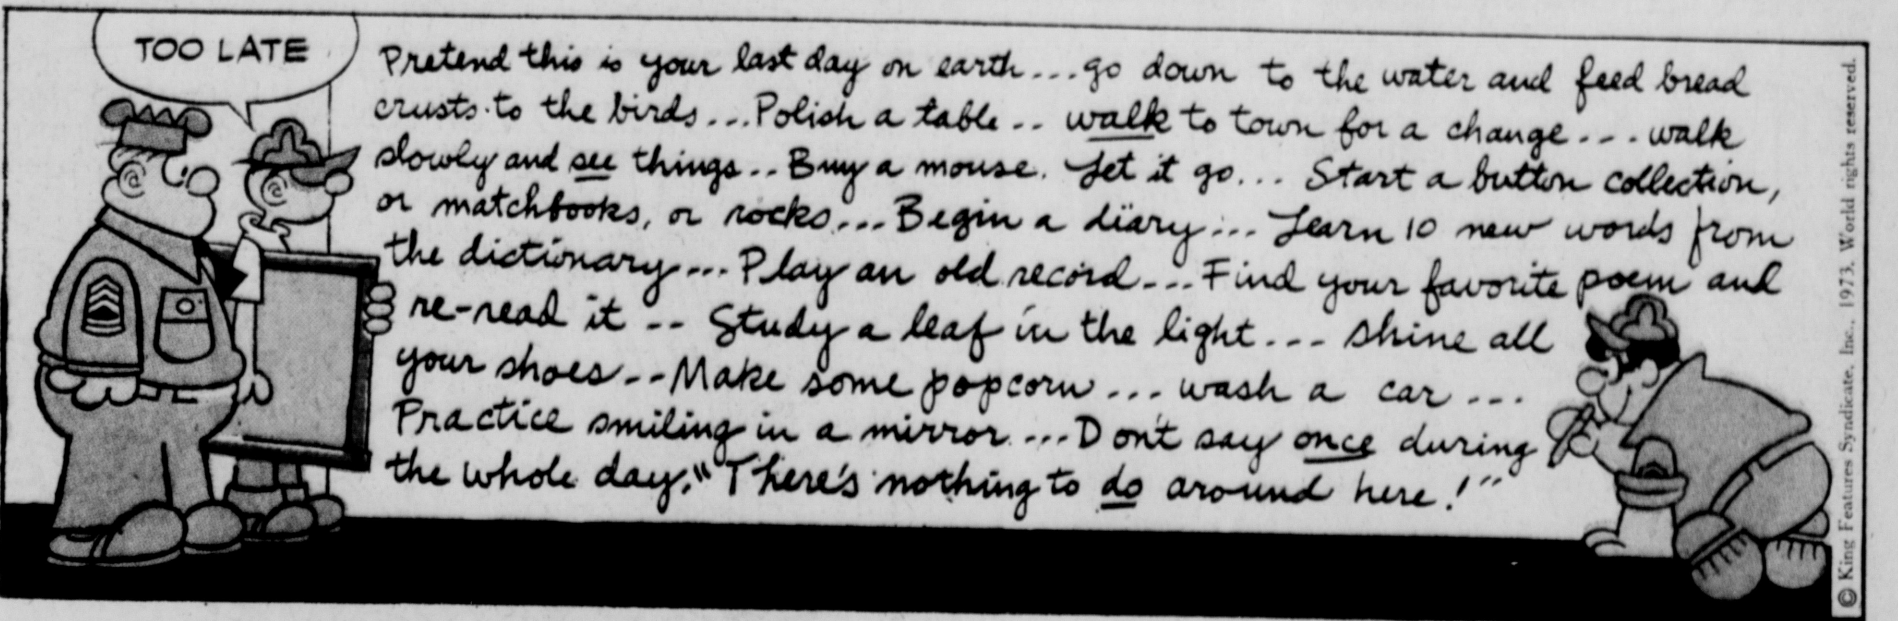 TOO LATE
Pretend this is your last day on earth...go down to the water and feed bread
crusts to the birds...Polish a table.. walk to town for a change... walk
slowly and see things... Buy a mouse. Let it go... Start a button collection,
or matchbooks, or rocks... Begin a diary... Learn 10 new words from
the dictionary... Play an old record... Find your favorite poem and
re-read it -- Study a leaf in the light... shine all
your shoes -- Make some popcorn... wash a car...
Practice smiling in a mirror....Don't say once during
the whole day, "There's nothing to do around here!"
© King Features Syndicate, Inc., 1973. World rights reserved.